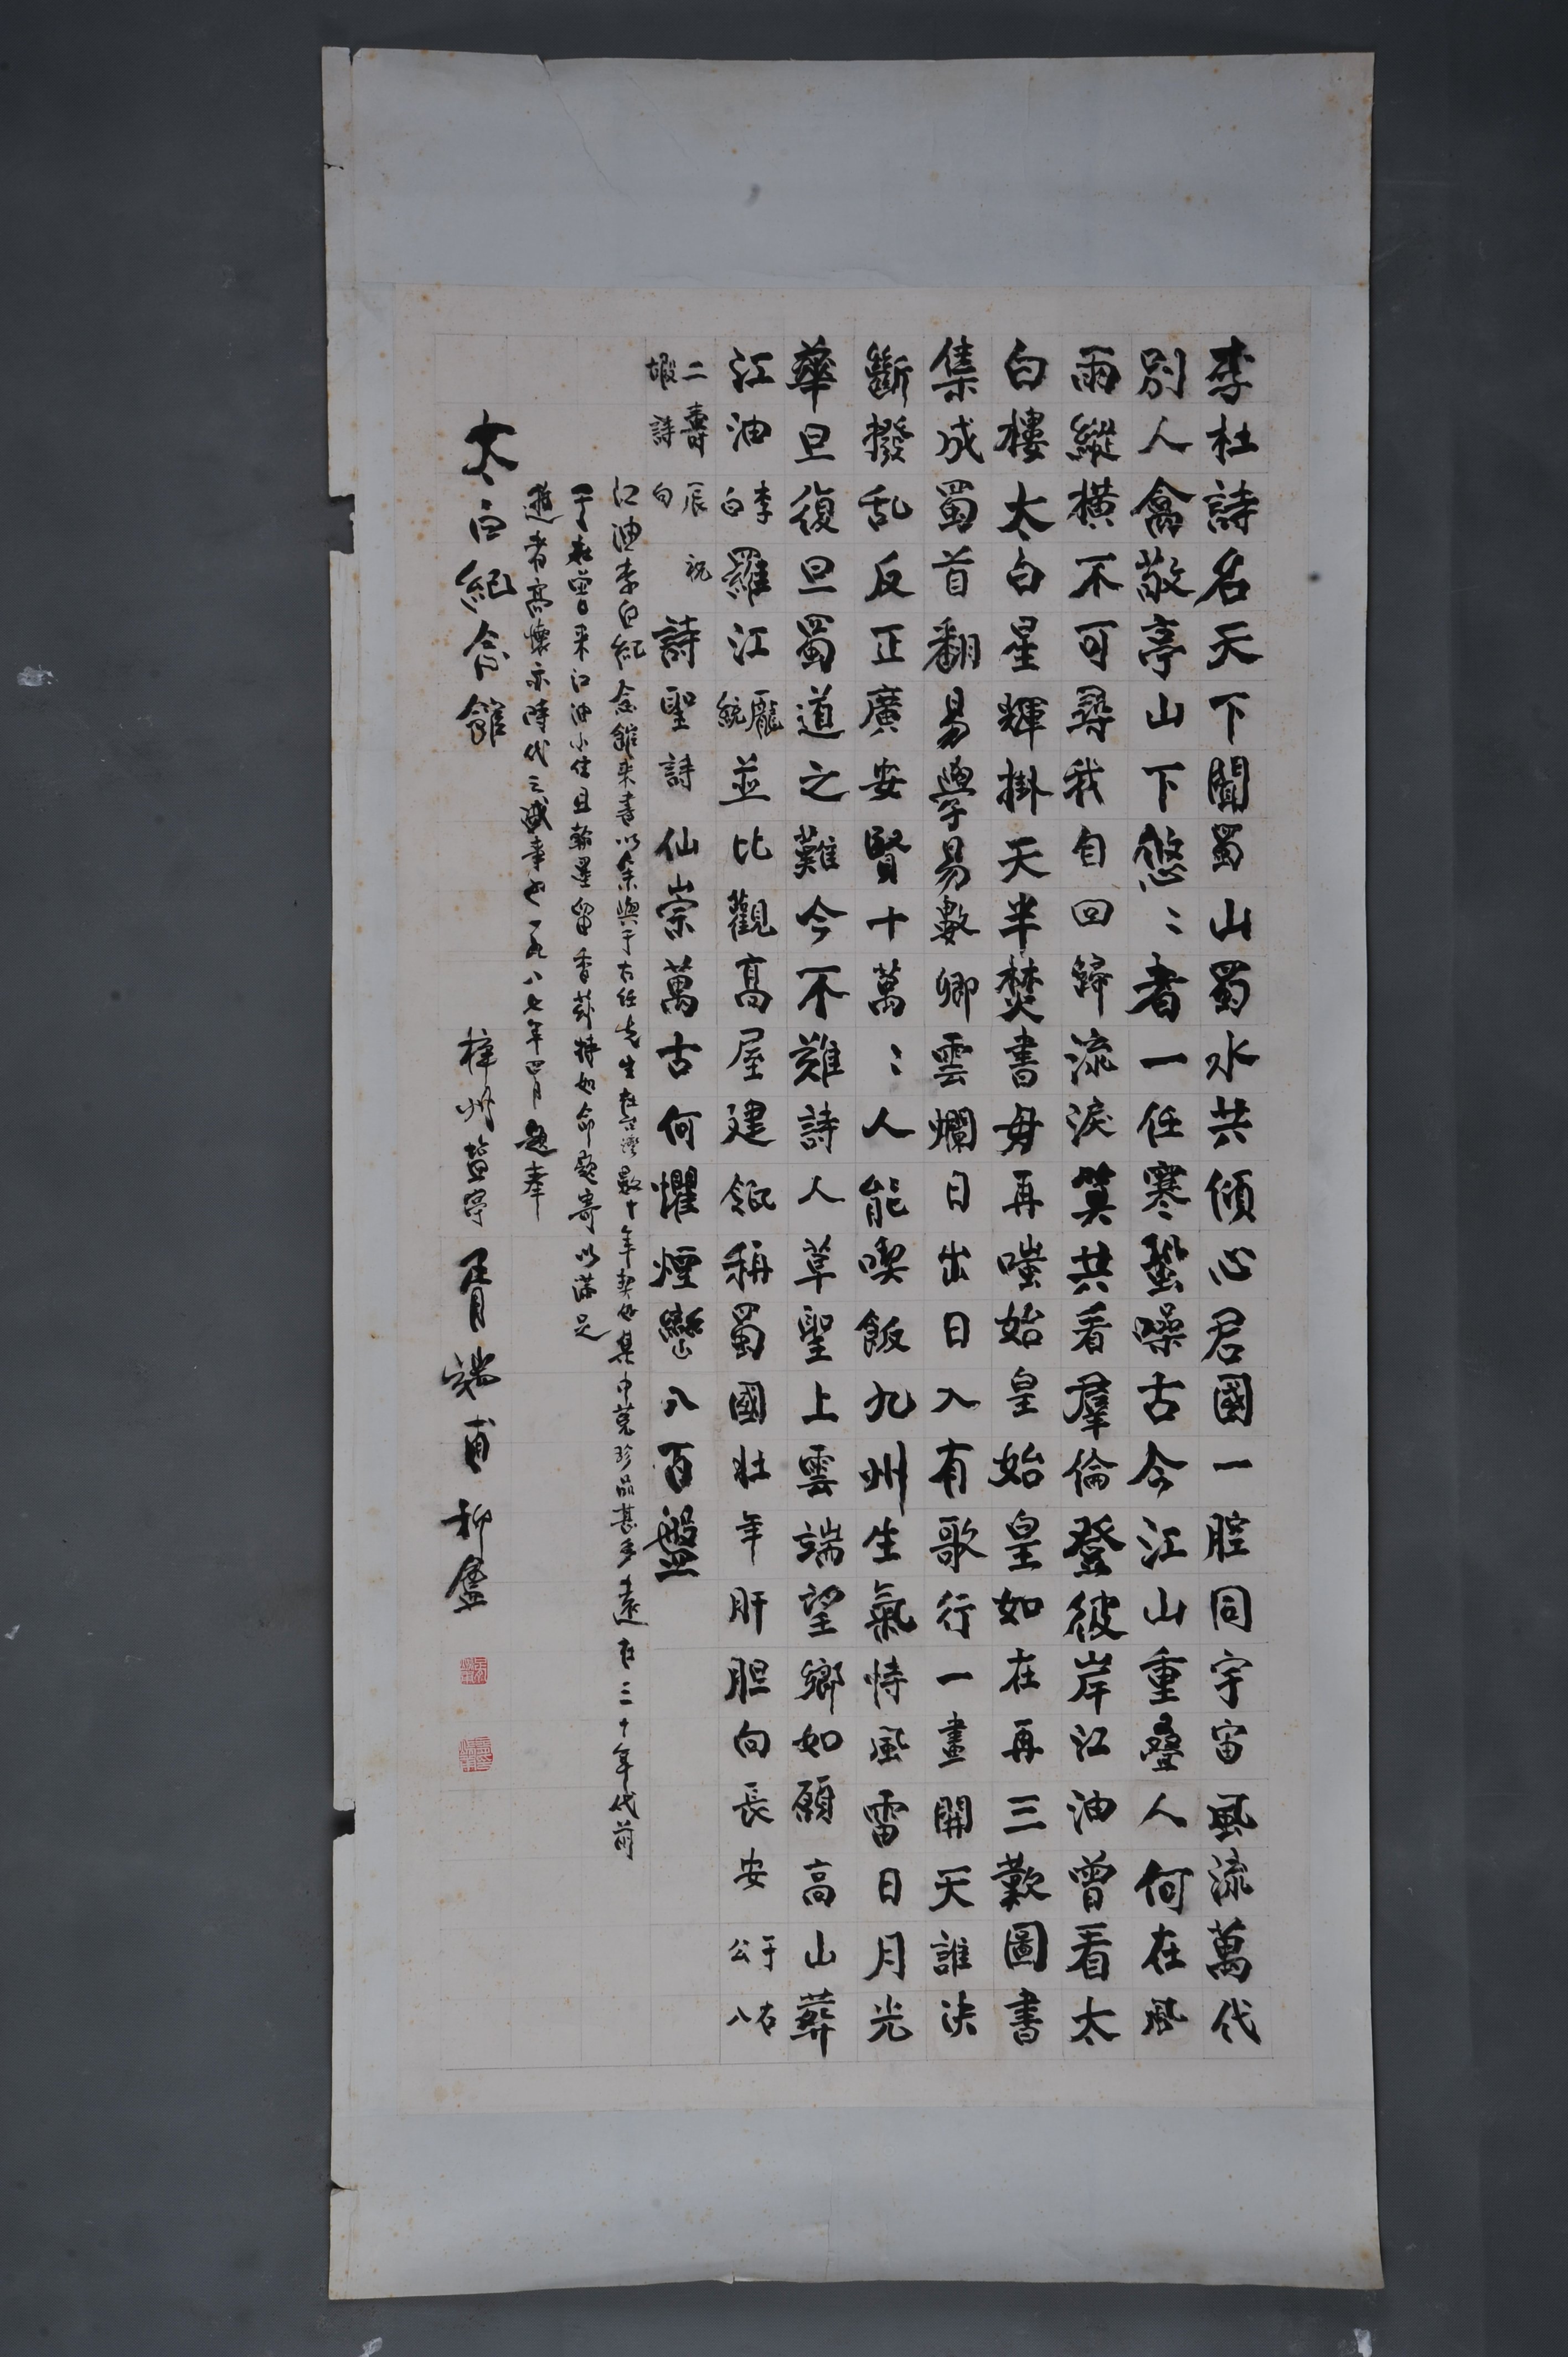 李杜詩名天下聞蜀山蜀水共傾心君國一腔同宇宙風流萬代
別人禽敬亭山下悠〻者一任寒蛩噪古今江山重疊人何在風
雨縱橫不可尋我自回歸流淚笑共看羣倫登彼岸江油曾看太
白樓太白星輝掛天半焚書毋再嗤始皇始皇如在再三歎圖書
集成蜀首翻易學易數卿雲爛日出日入有歌行一畫開天誰決
斷撥乱反正廣安賢十萬〻人能喫飯九州生氣恃風雷日月光
華旦復旦蜀道之難今不難詩人草聖上雲端望鄉如願高山葬
江油李白羅江龐統並比觀高屋建瓴稱蜀國壯年肝胆向長安于右公八
二壽辰祝嘏詩句詩聖詩仙崇萬古何懼煙巒八百盤
江油李白紀念館来書以余與于右任先生在台灣數十年契好集中蒐珍品甚多遠在三十年代前
于老曾来江油小住且翰墨留香茲特如命題寄以滿足
遊者高懷亦時代之盛事也一九八七年四月題奉
太白紀念館
梓州藍亭胥端甫柳盦